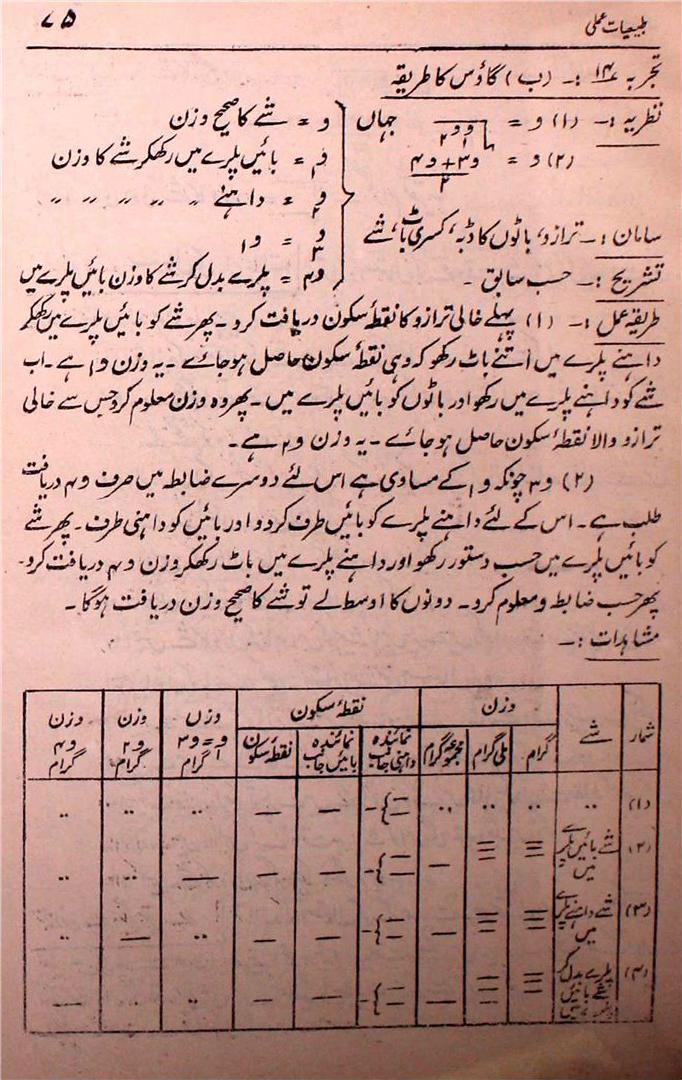 طبیعیات عملی
۷۵
تجربہ ۱۴ :- (ب) گاؤس کا طریقہ
نظریہ :- (۱) و = √و۱و۲ جہاں
(۲) و = و۳+و۴ / ۲
و = شے کا صحیح وزن
و۱ = بائیں پلرے میں رکھکر شے کا وزن
و۲ = داہنے " " " " "
و۳ = و۱
و۴ = پلرے بدل کر شے کا وزن بائیں پلرے میں
سامان :- ترازو، باٹوں کا ڈبہ، کسری باٹ، شے
تشریح :- حسب سابق -
طریقۂ عمل :- (۱) پہلے خالی ترازو کا نقطۂ سکون دریافت کرو - پھر شے کو بائیں پلرے میں رکھکر
داہنے پلرے میں اتنے باٹ رکھو کہ وہی نقطۂ سکون حاصل ہوجائے - یہ وزن و۱ ہے - اب
شے کو داہنے پلرے میں رکھو اور باٹوں کو بائیں پلرے میں - پھر وہ وزن معلوم کرو جس سے خالی
ترازو والا نقطۂ سکون حاصل ہوجائے - یہ وزن و۲ ہے -
(۲) و۳ چونکہ و۱ کے مساوی ہے اس لئے دوسرے ضابطہ میں صرف و۴ دریافت
طلب ہے - اس کے لئے داہنے پلرے کو بائیں طرف کردو اور بائیں کو داہنی طرف - پھر شے
کو بائیں پلرے میں حسب دستور رکھو اور داہنے پلرے میں باٹ رکھکر وزن و۴ دریافت کرو -
پھر حسب ضابطہ و معلوم کرو - دونوں کا اوسط لے تو شے کا صحیح وزن دریافت ہوگا -
مشاہدات :-
شمار شے وزن نقطۂ سکون وزن و۱=و۳ گرام وزن و۲ گرام وزن و۴ گرام
گرام ملی گرام مجموعہ گرام نمائندہ داہنی جانب نمائندہ بائیں جانب نقطۂ سکون
(۱)
(۲) شے بائیں پلرے میں
(۳) شے داہنے پلرے میں
(۴) پلرے بدل کر شے بائیں